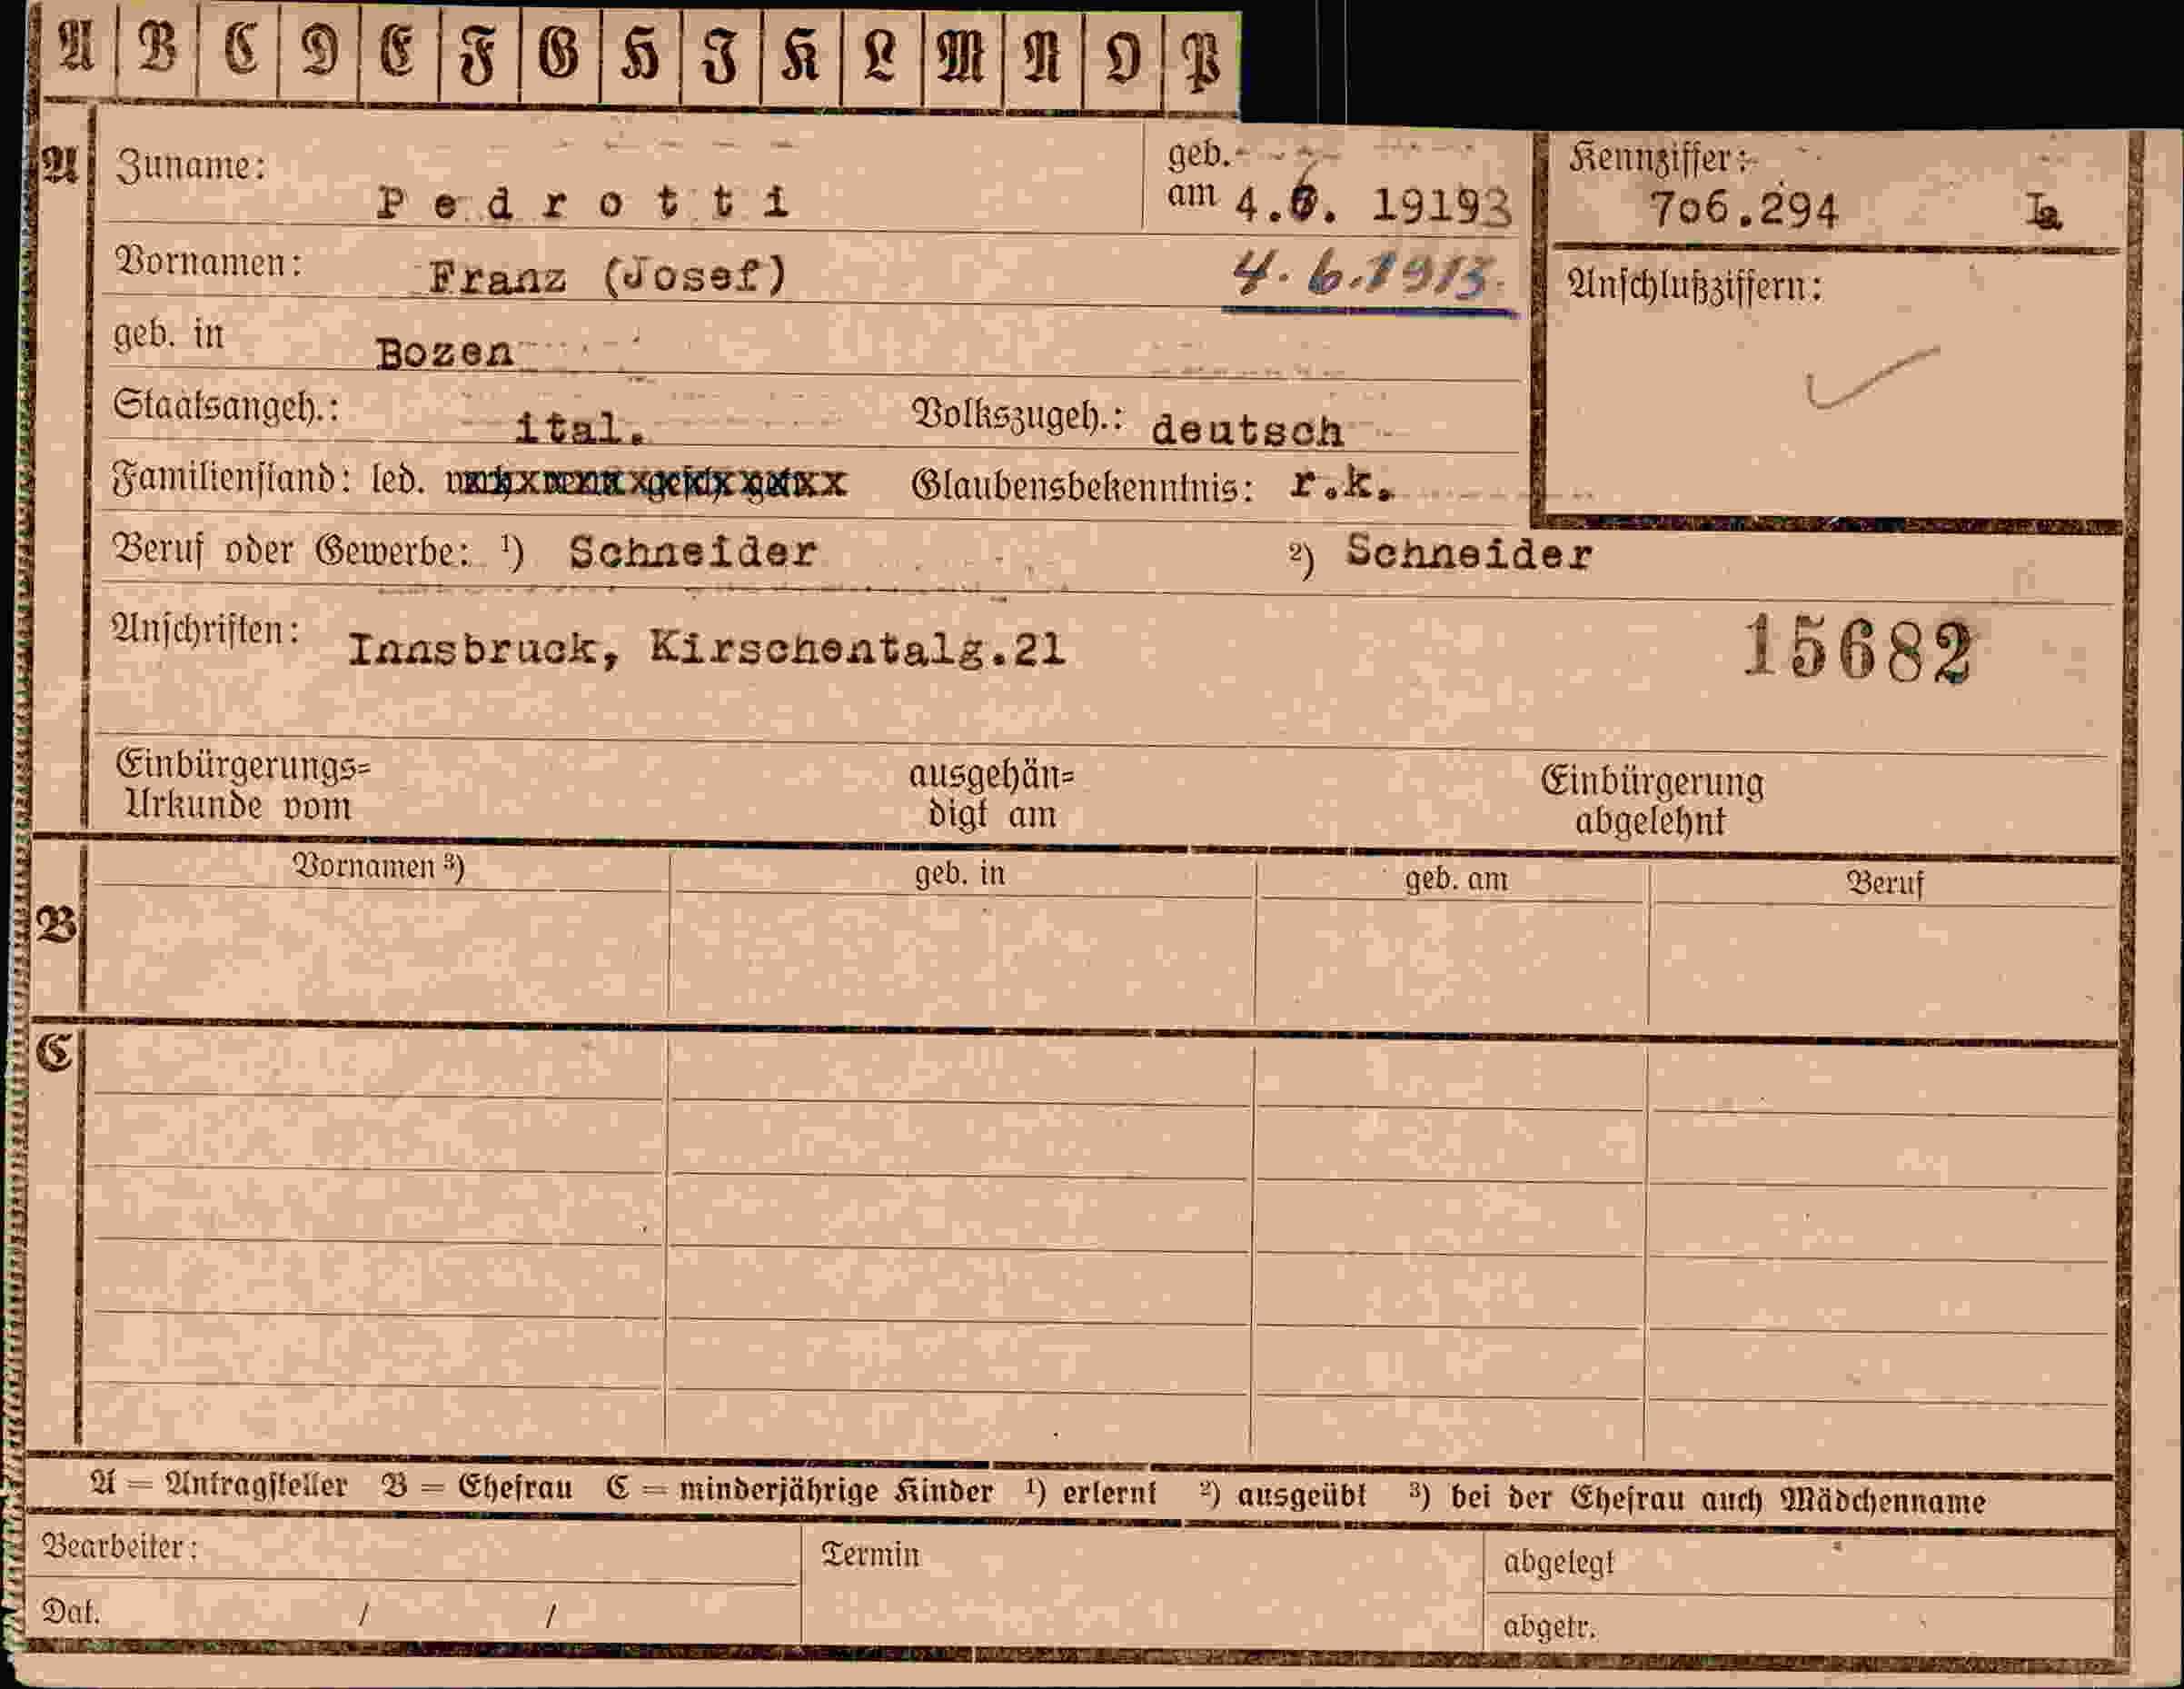 A B C D E F G H I K L M N O P
A Zuname: Pedrotti geb. am 4.6. 19193 Kennziffer: 706.294 Ia
Vornamen: Franz (Josef) 4.6.1913. Anschlußziffern:
geb. in Bozen
Staatsangeh.: ital. Volkszugeh.: deutsch
Familienstand: led. Glaubensbekenntnis: r.k.
Beruf oder Gewerbe: ¹) Schneider ²) Schneider
Anschriften: Innsbruck, Kirschentalg.21 15682
Einbürgerungs= ausgehän= Einbürgerung
Urkunde vom digt am abgelehnt
Vornamen ³) geb. in geb. am Beruf
B
C
A = Antragsteller B = Ehefrau C = minderjährige Kinder ¹) erlernt ²) ausgeübt ³) bei der Ehefrau auch Mädchenname
Bearbeiter: Termin abgelegt
Dat. / / abgetr.